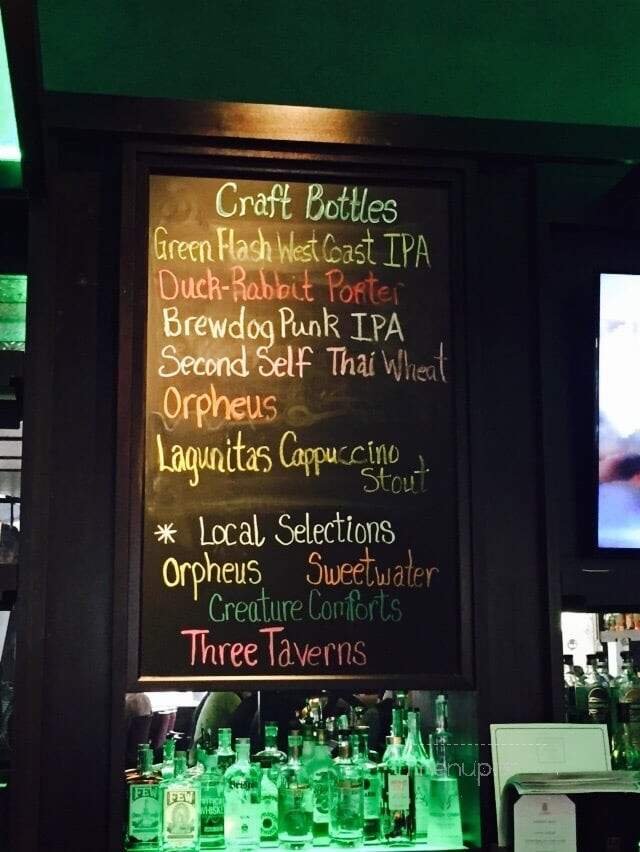 Craft Bottles
Green Flash West Coast IPA
Duck-Rabbit Porter
Brewdog Punk IPA
Second Self Thai Wheat
Orpheus
Lagunitas Cappuccino
Stout
* Local Selections
Orpheus Sweetwater
Creature Comforts
Three Taverns
FEW
FEW
WHISKEY
menup